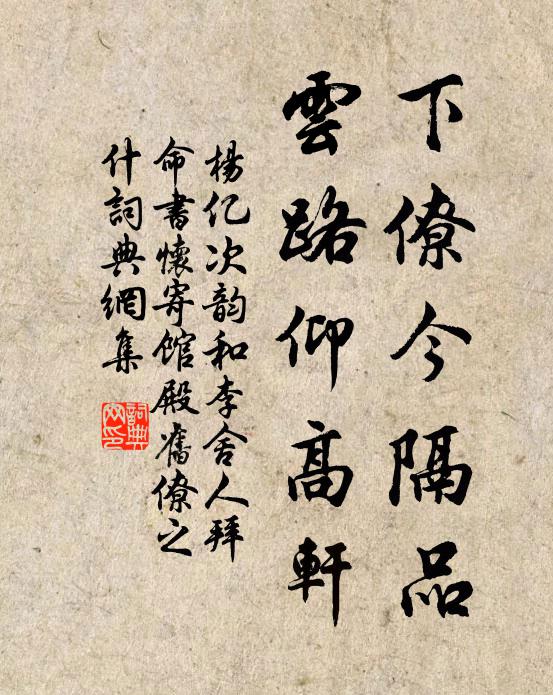 下僚今隔品
雲路仰高軒
楊億次韵和李舍人拜
命書懷寄館殿舊僚之
什詞典網集
詞典
网印